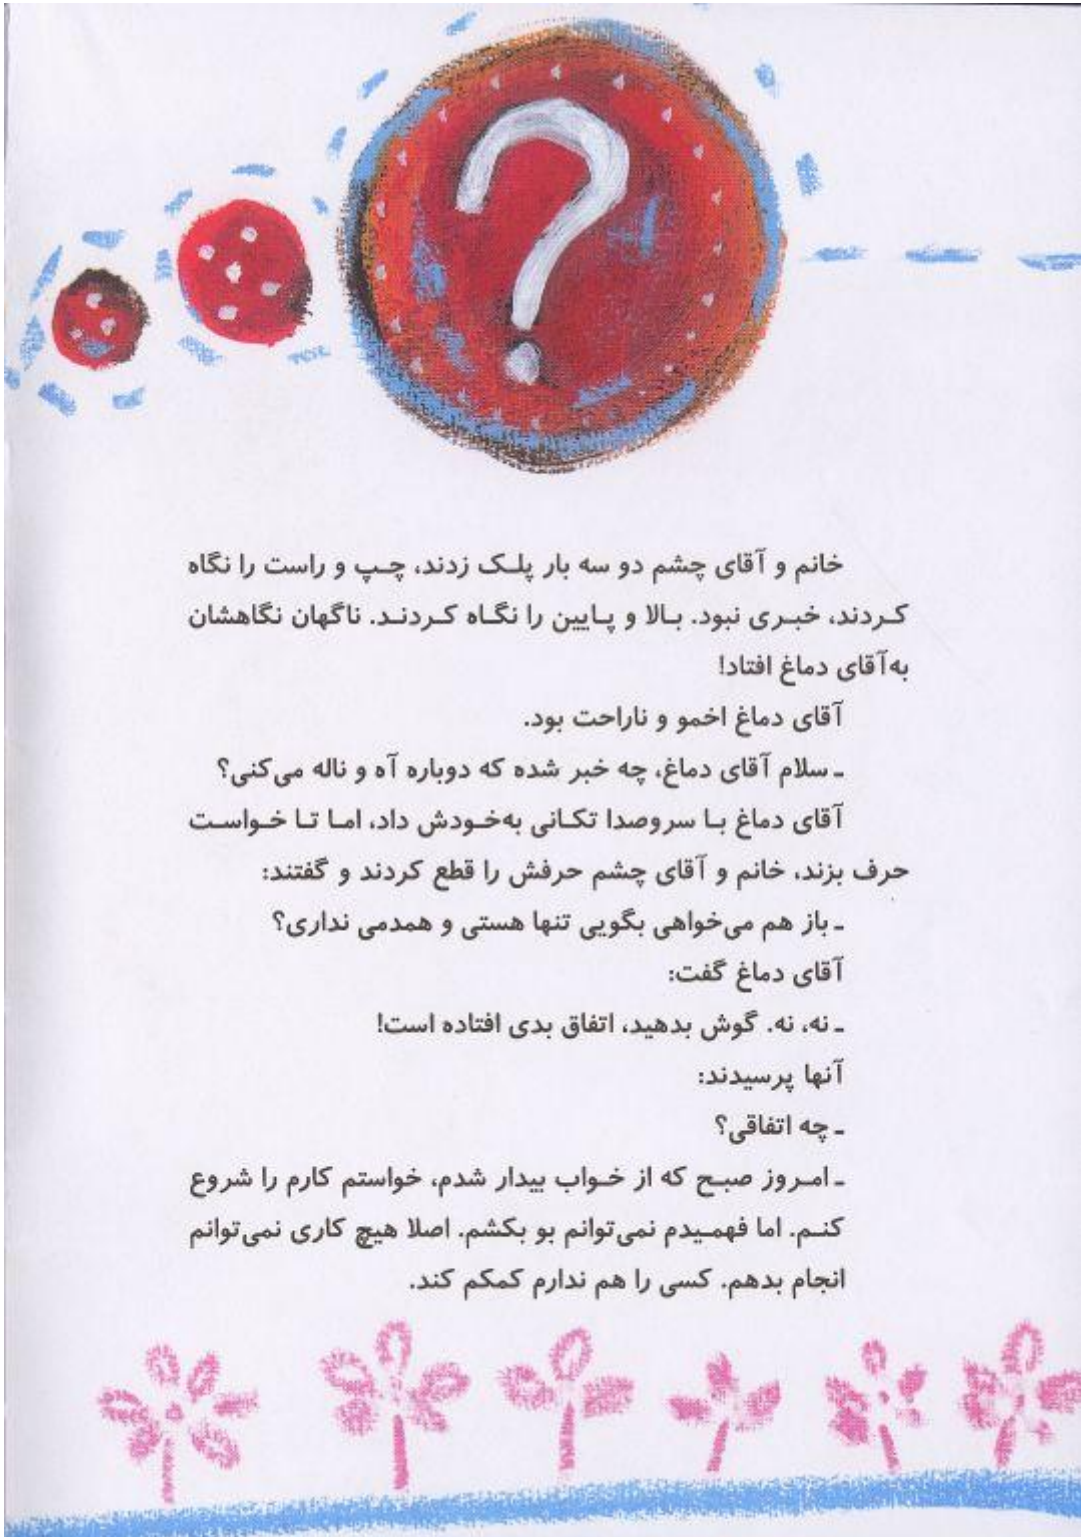 ?
خانم و آقای چشم دو سه بار پلک زدند، چپ و راست را نگاه
کردند، خبری نبود. بالا و پایین را نگاه کردند. ناگهان نگاهشان
به‌آقای دماغ افتاد!
آقای دماغ اخمو و ناراحت بود.
ـ سلام آقای دماغ، چه خبر شده که دوباره آه و ناله می‌کنی؟
آقای دماغ با سروصدا تکانی به‌خودش داد، اما تا خواست
حرف بزند، خانم و آقای چشم حرفش را قطع کردند و گفتند:
ـ باز هم می‌خواهی بگویی تنها هستی و همدمی نداری؟
آقای دماغ گفت:
ـ نه، نه. گوش بدهید، اتفاق بدی افتاده است!
آنها پرسیدند:
ـ چه اتفاقی؟
ـ امروز صبح که از خواب بیدار شدم، خواستم کارم را شروع
کنم. اما فهمیدم نمی‌توانم بو بکشم. اصلا هیچ کاری نمی‌توانم
انجام بدهم. کسی را هم ندارم کمکم کند.